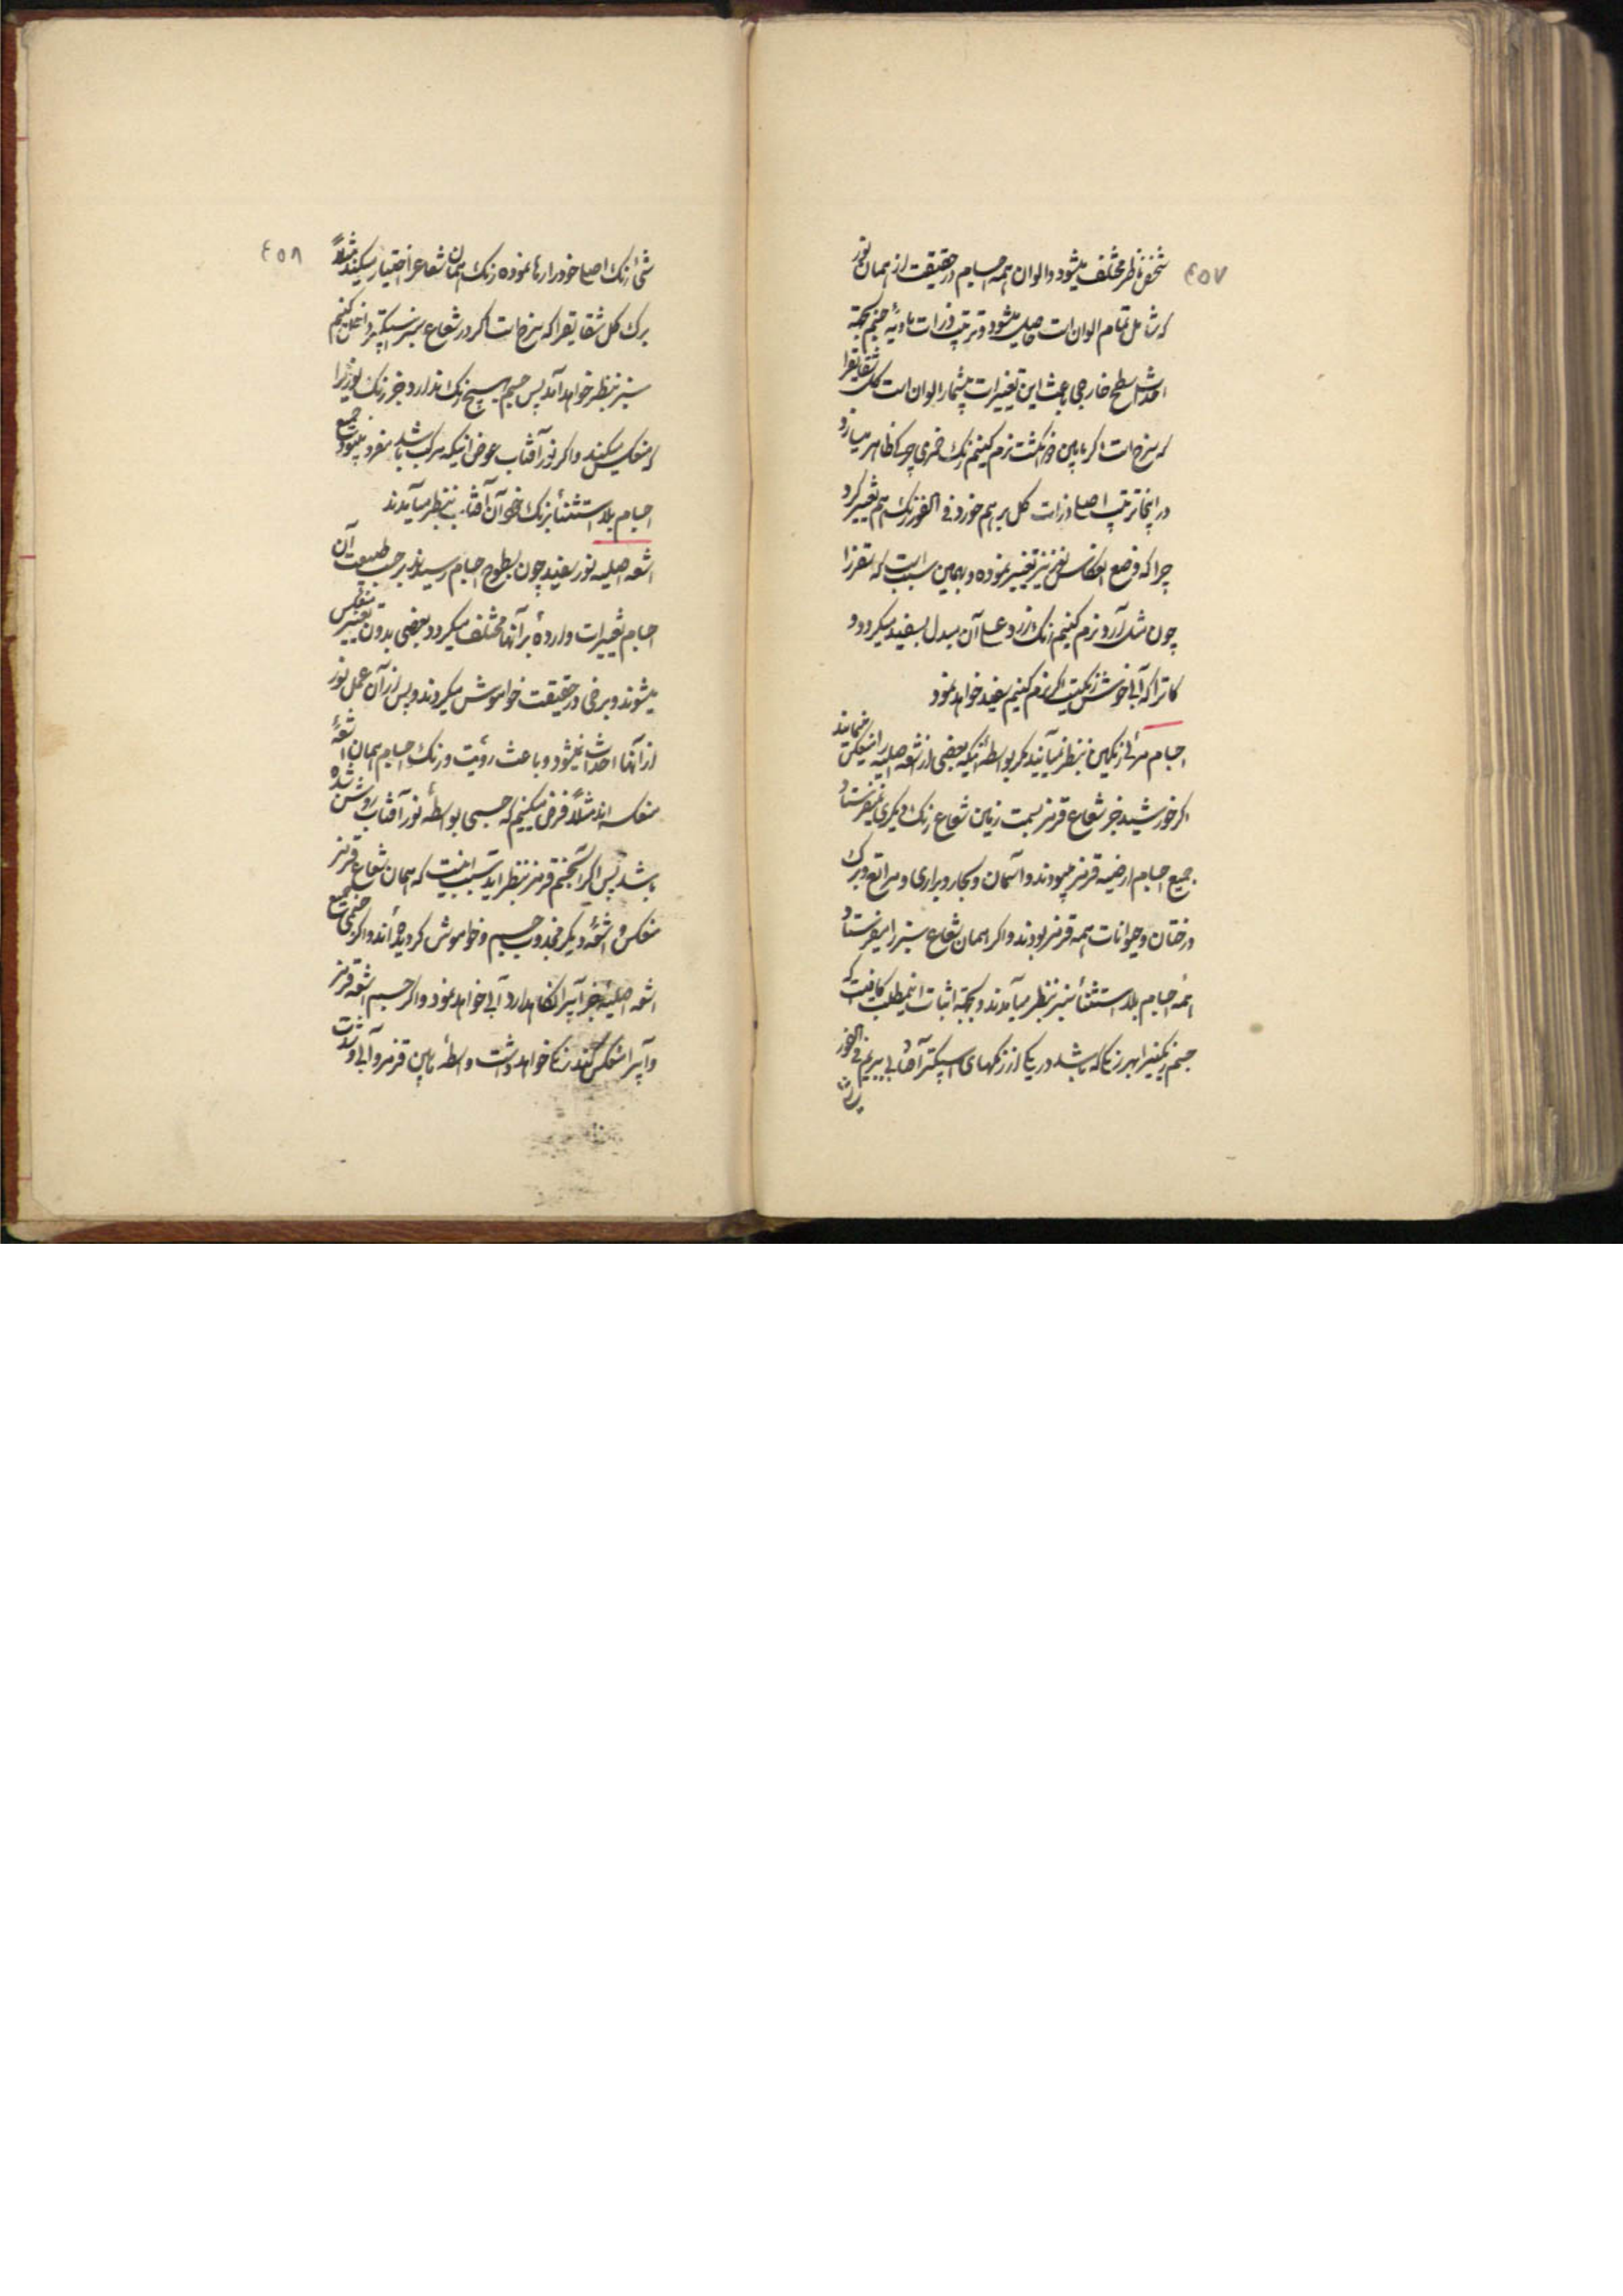 ٤٥٧
شخص ناظر مختلف میشود و الوان همه اجسام در حقیقت از همان نور
که شامل تمام الوان است حاصل میشود و ترتیب ذرات مادیه جسم بجهة
احداث سطح خارجی باعث این تغییرات بیشمار الوان است کل شقایقرا
که سرخ است اگر مابین دو انگشت نرم کنیم رنک خمری چرک ظاهر میسازد
در اینجا ترتیب اصلی ذرات کل بر هم خورد فی الفور رنک هم تغییر کرد
چرا که وضع انعکاس نور نیز تغییر نموده و بهمین سبب است که
چون مثل آرد نرم کنیم رنک زرد آن مبدل بسفید میکردد و
که آبی خوش رنکیست اگر نرم کنیم سفید خواهد نمود
اجسام مرئی رنگین بنظر نمیآیند مکر بواسطه اینکه بعضی از اشعه اصلیه را منعکس مینمایند
اگر خورشید جز شعاع قرمز بسمت زمین شعاع رنک دیگری نمیفرستاد
جمیع اجسام ارضیه قرمز میبودند و آسمان و بحار و براری و مراتع و برک
درختان و حیوانات همه قرمز بودند و اگر همان شعاع سبز را میفرستاد
همه اجسام بلا استثناء سبز بنظر میآمدند و بجهة اثبات اینمطلب کافیست که
جسم رنگین را بهر رنگی که باشد در یکی از رنکهای اسپکتر آفتابی ببریم فی الفور
٤٥٨
شیء رنک اصلی خود را رها نموده رنک همان شعاع را اختیار میکند مثلاً
برک کل شقایقرا که سرخ است اگر در شعاع سبز اسپکتر داخل کنیم
سبز بنظر خواهد آمد پس جسم هیچ رنک ندارد جز رنک نوریرا
که منعکس میکند و اگر نور آفتاب عوض اینکه مرکب باشد مفرد میبود جمیع
اجسام بلا استثناء برنک خود آن آفتاب بنظر میآمدند
اشعه اصلیه نور سفید چون بسطوح اجسام رسیدند بر حسب طبیعت آن
اجسام تغییرات وارده بر آنها مختلف میکردد بعضی بدون تغییر منعکس
میشوند و برخی در حقیقت خواموش میکردند و پس از آن عمل نور
از آنها احداث نمیشود و باعث رؤیت و رنک اجسام همان اشعهٔ
منعکسه اند مثلاً فرض میکنیم که جسمی بواسطهٔ نور آفتاب روشن شده
باشد پس اگر آنجسم قرمز بنظر آید سبب اینست که همان شعاع قرمز
منعکس و اشعهٔ دیگر مجذوب جسم و خواموش کردیده اند و اگر جسمی جمیع
اشعه اصلیه جز آبیرا نگاهدارد آبی خواهد نمود و اگر جسم اشعه قرمز
و آبیرا منعکس کند رنگی خواهد داشت واسطهٔ مابین قرمز و آبی و شدت